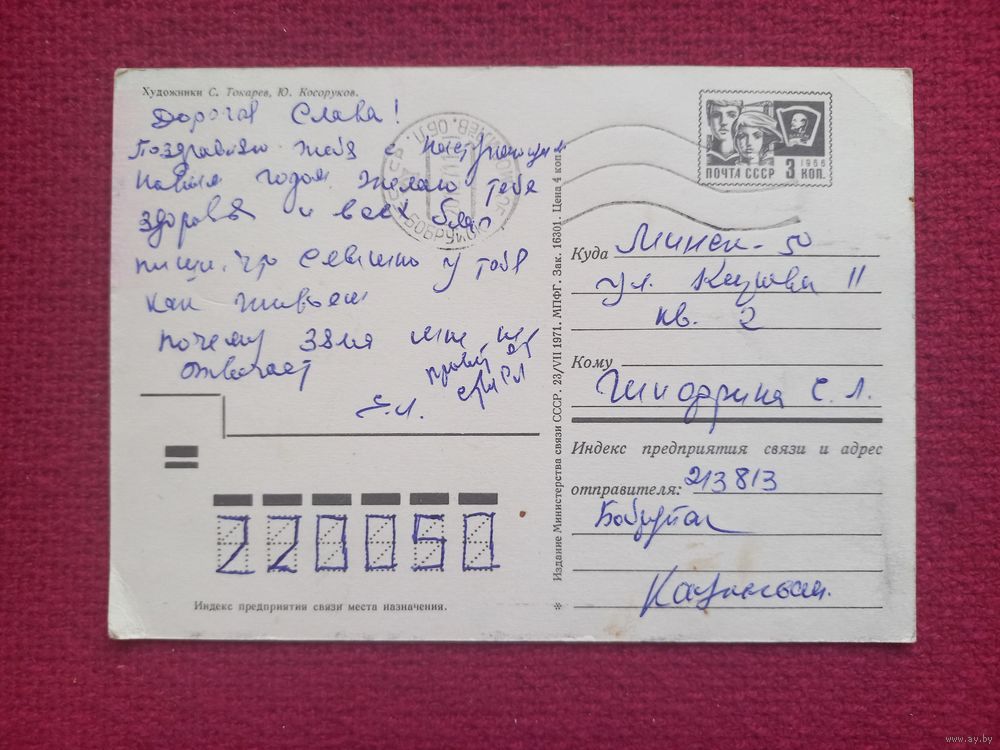 Художники С. Токарев, Ю. Косоруков.
Дорогая Слава!
Поздравляю тебя с наступающим
Новым годом желаю тебе
здоровья и всех благ
пиши, что слышно у тебя
как живьом
почему Зэля мне не
отвечает
привет
Е.Л.
Индекс предприятия связи места назначения.
220050
Издание Министерства связи СССР. 23/VII 1971. МПФГ. Зак. 16301. Цена 4 коп.
ПОЧТА СССР 3 КОП. 1966
Куда Минск-50
ул. 11
кв. 2
Кому
С. Л.
Индекс предприятия связи и адрес
отправителя: 213813
Бобруйск
www.ay.by